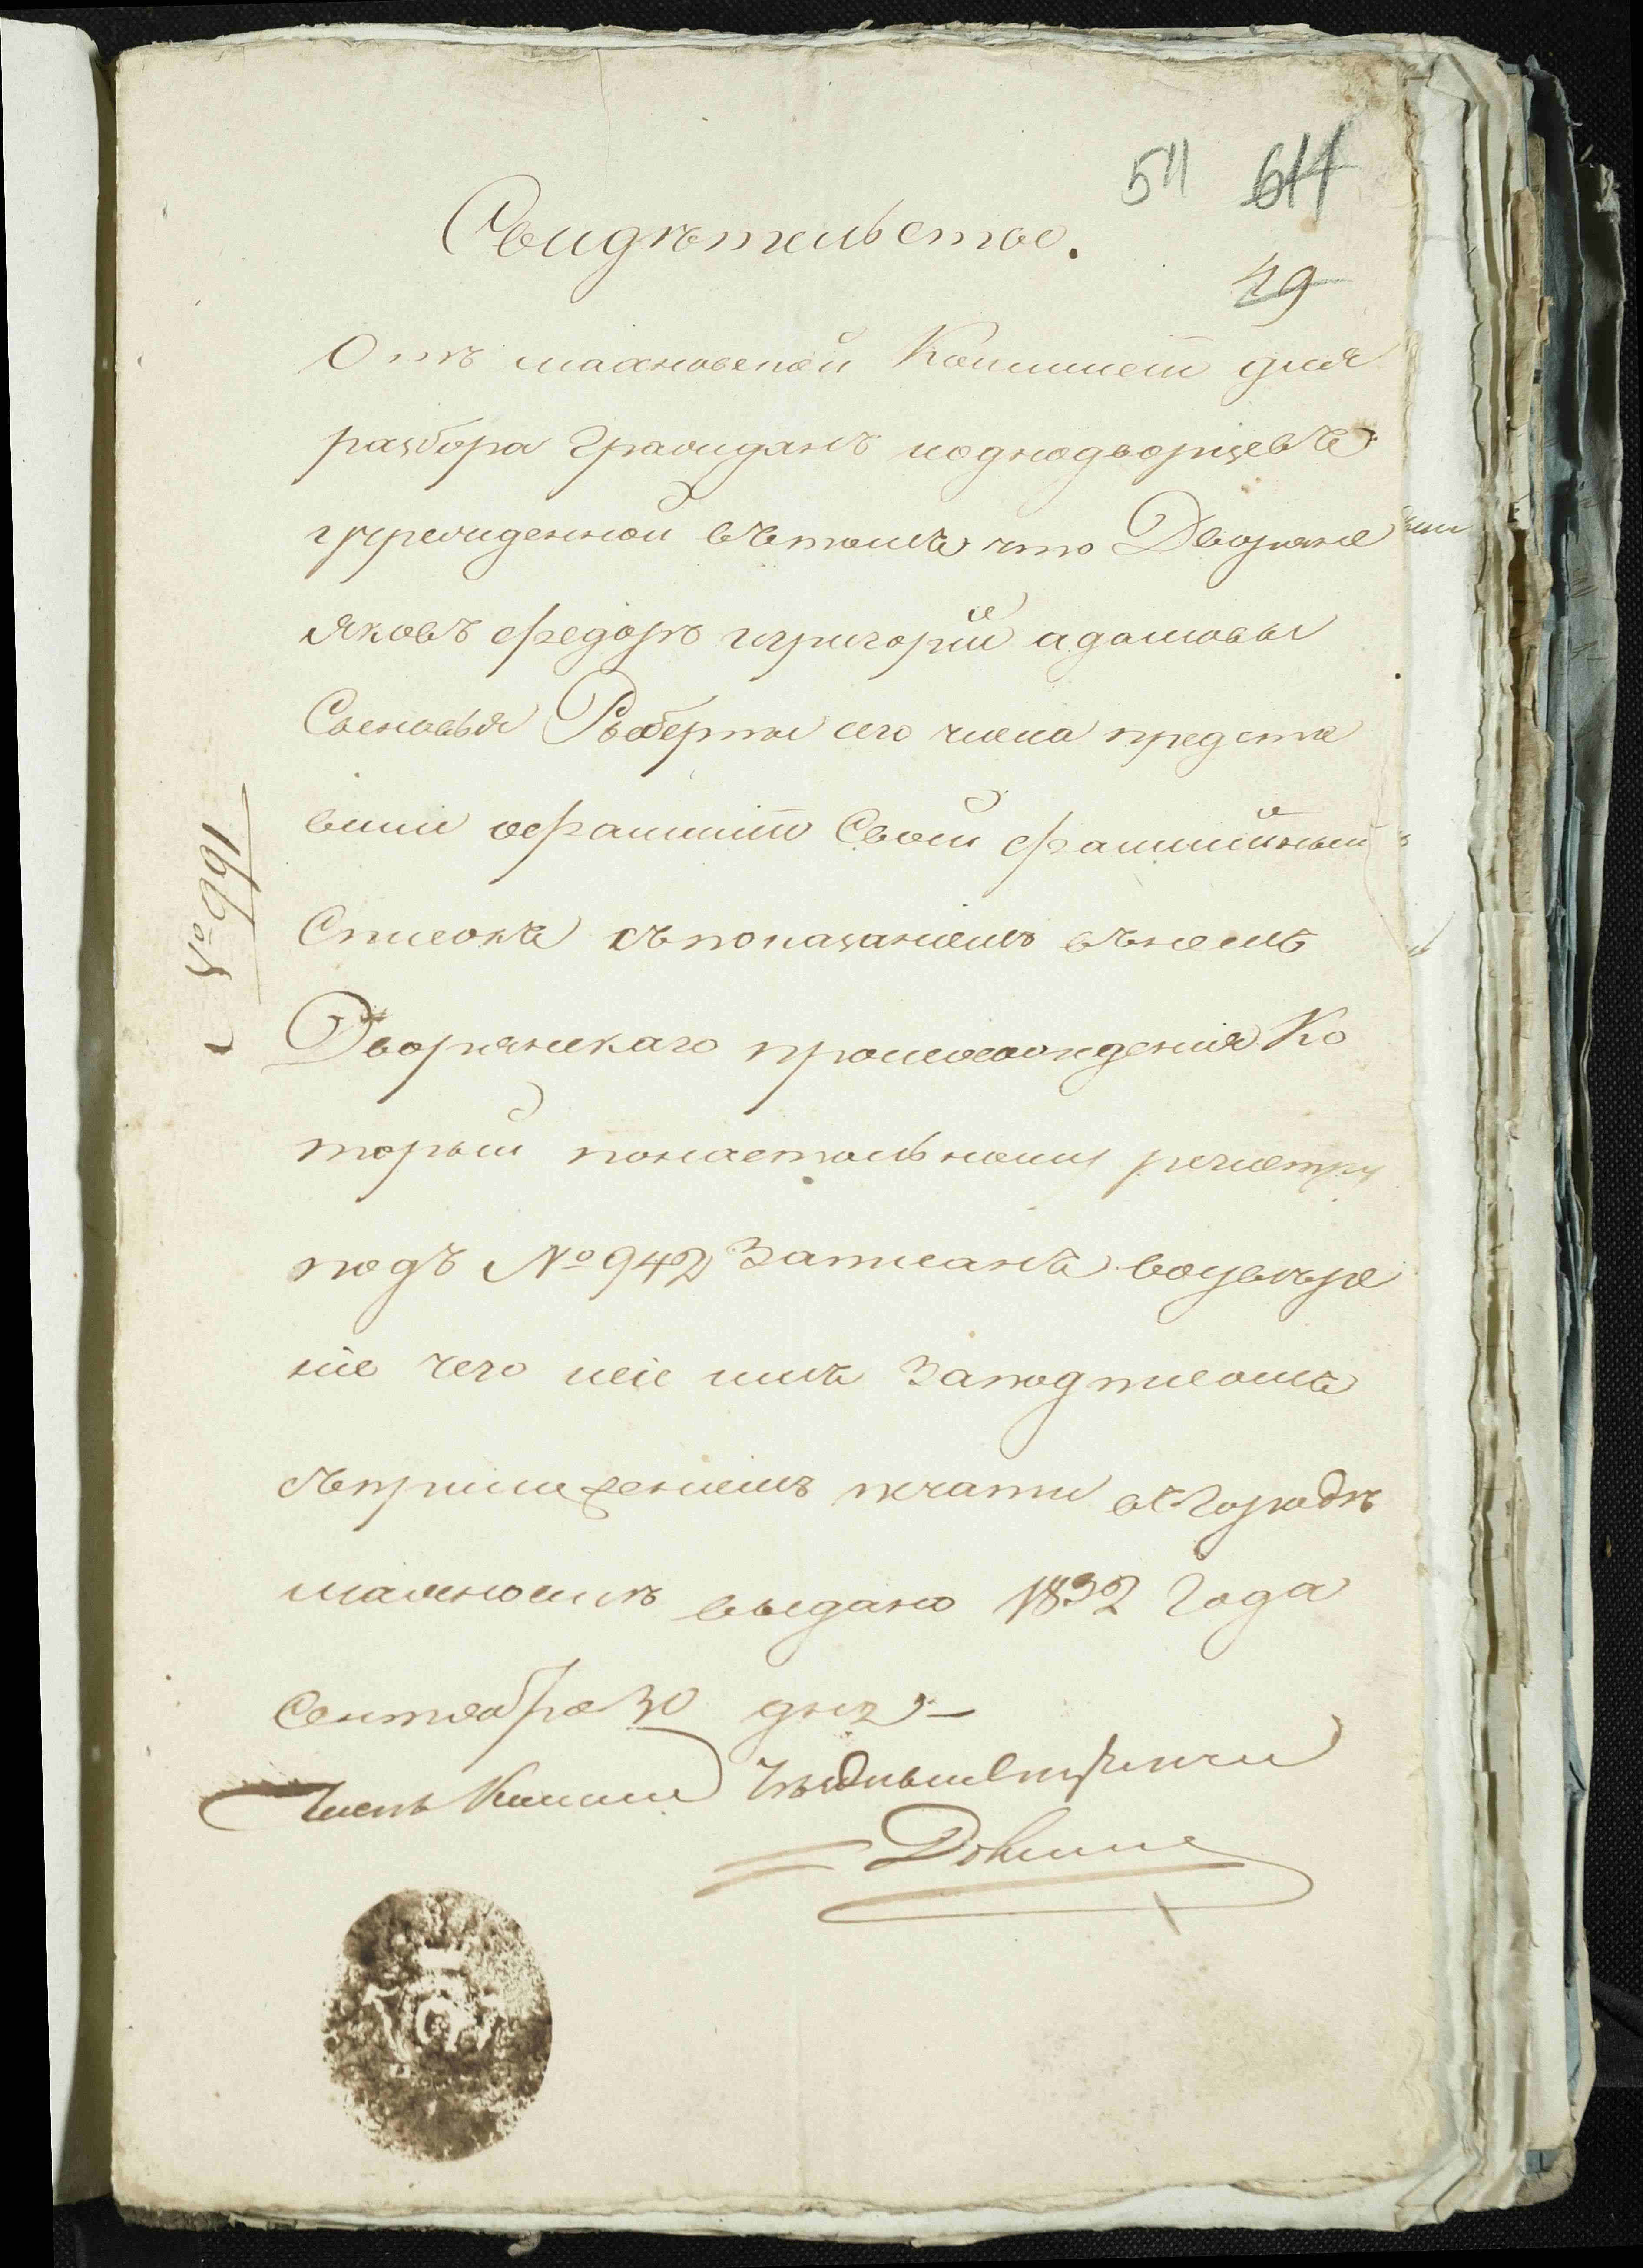 511 611
Свидѣтельство.
49
Отъ махновской Коммисіи для
разбора Гражданъ иоднодворцевъ
учрежденной вътомъ что Дворяне
Яковъ Федоръ игригорій адамовы
Сыновья Роберты сего числа предста
вили офамиліи Своей фамилійный
Списокъ съпоказаніемъ внемъ
Дворянскаго происхожденія Ко
торый понастольному регистру
подъ №942 Записанъ воувѣре
ніе чего сіе имъ Заподписомъ
съприложеніемъ печати въ Городѣ
махновкѣ выдано 1832 Года
Сентября 30 дня
Членъ Комисіи
№ 991